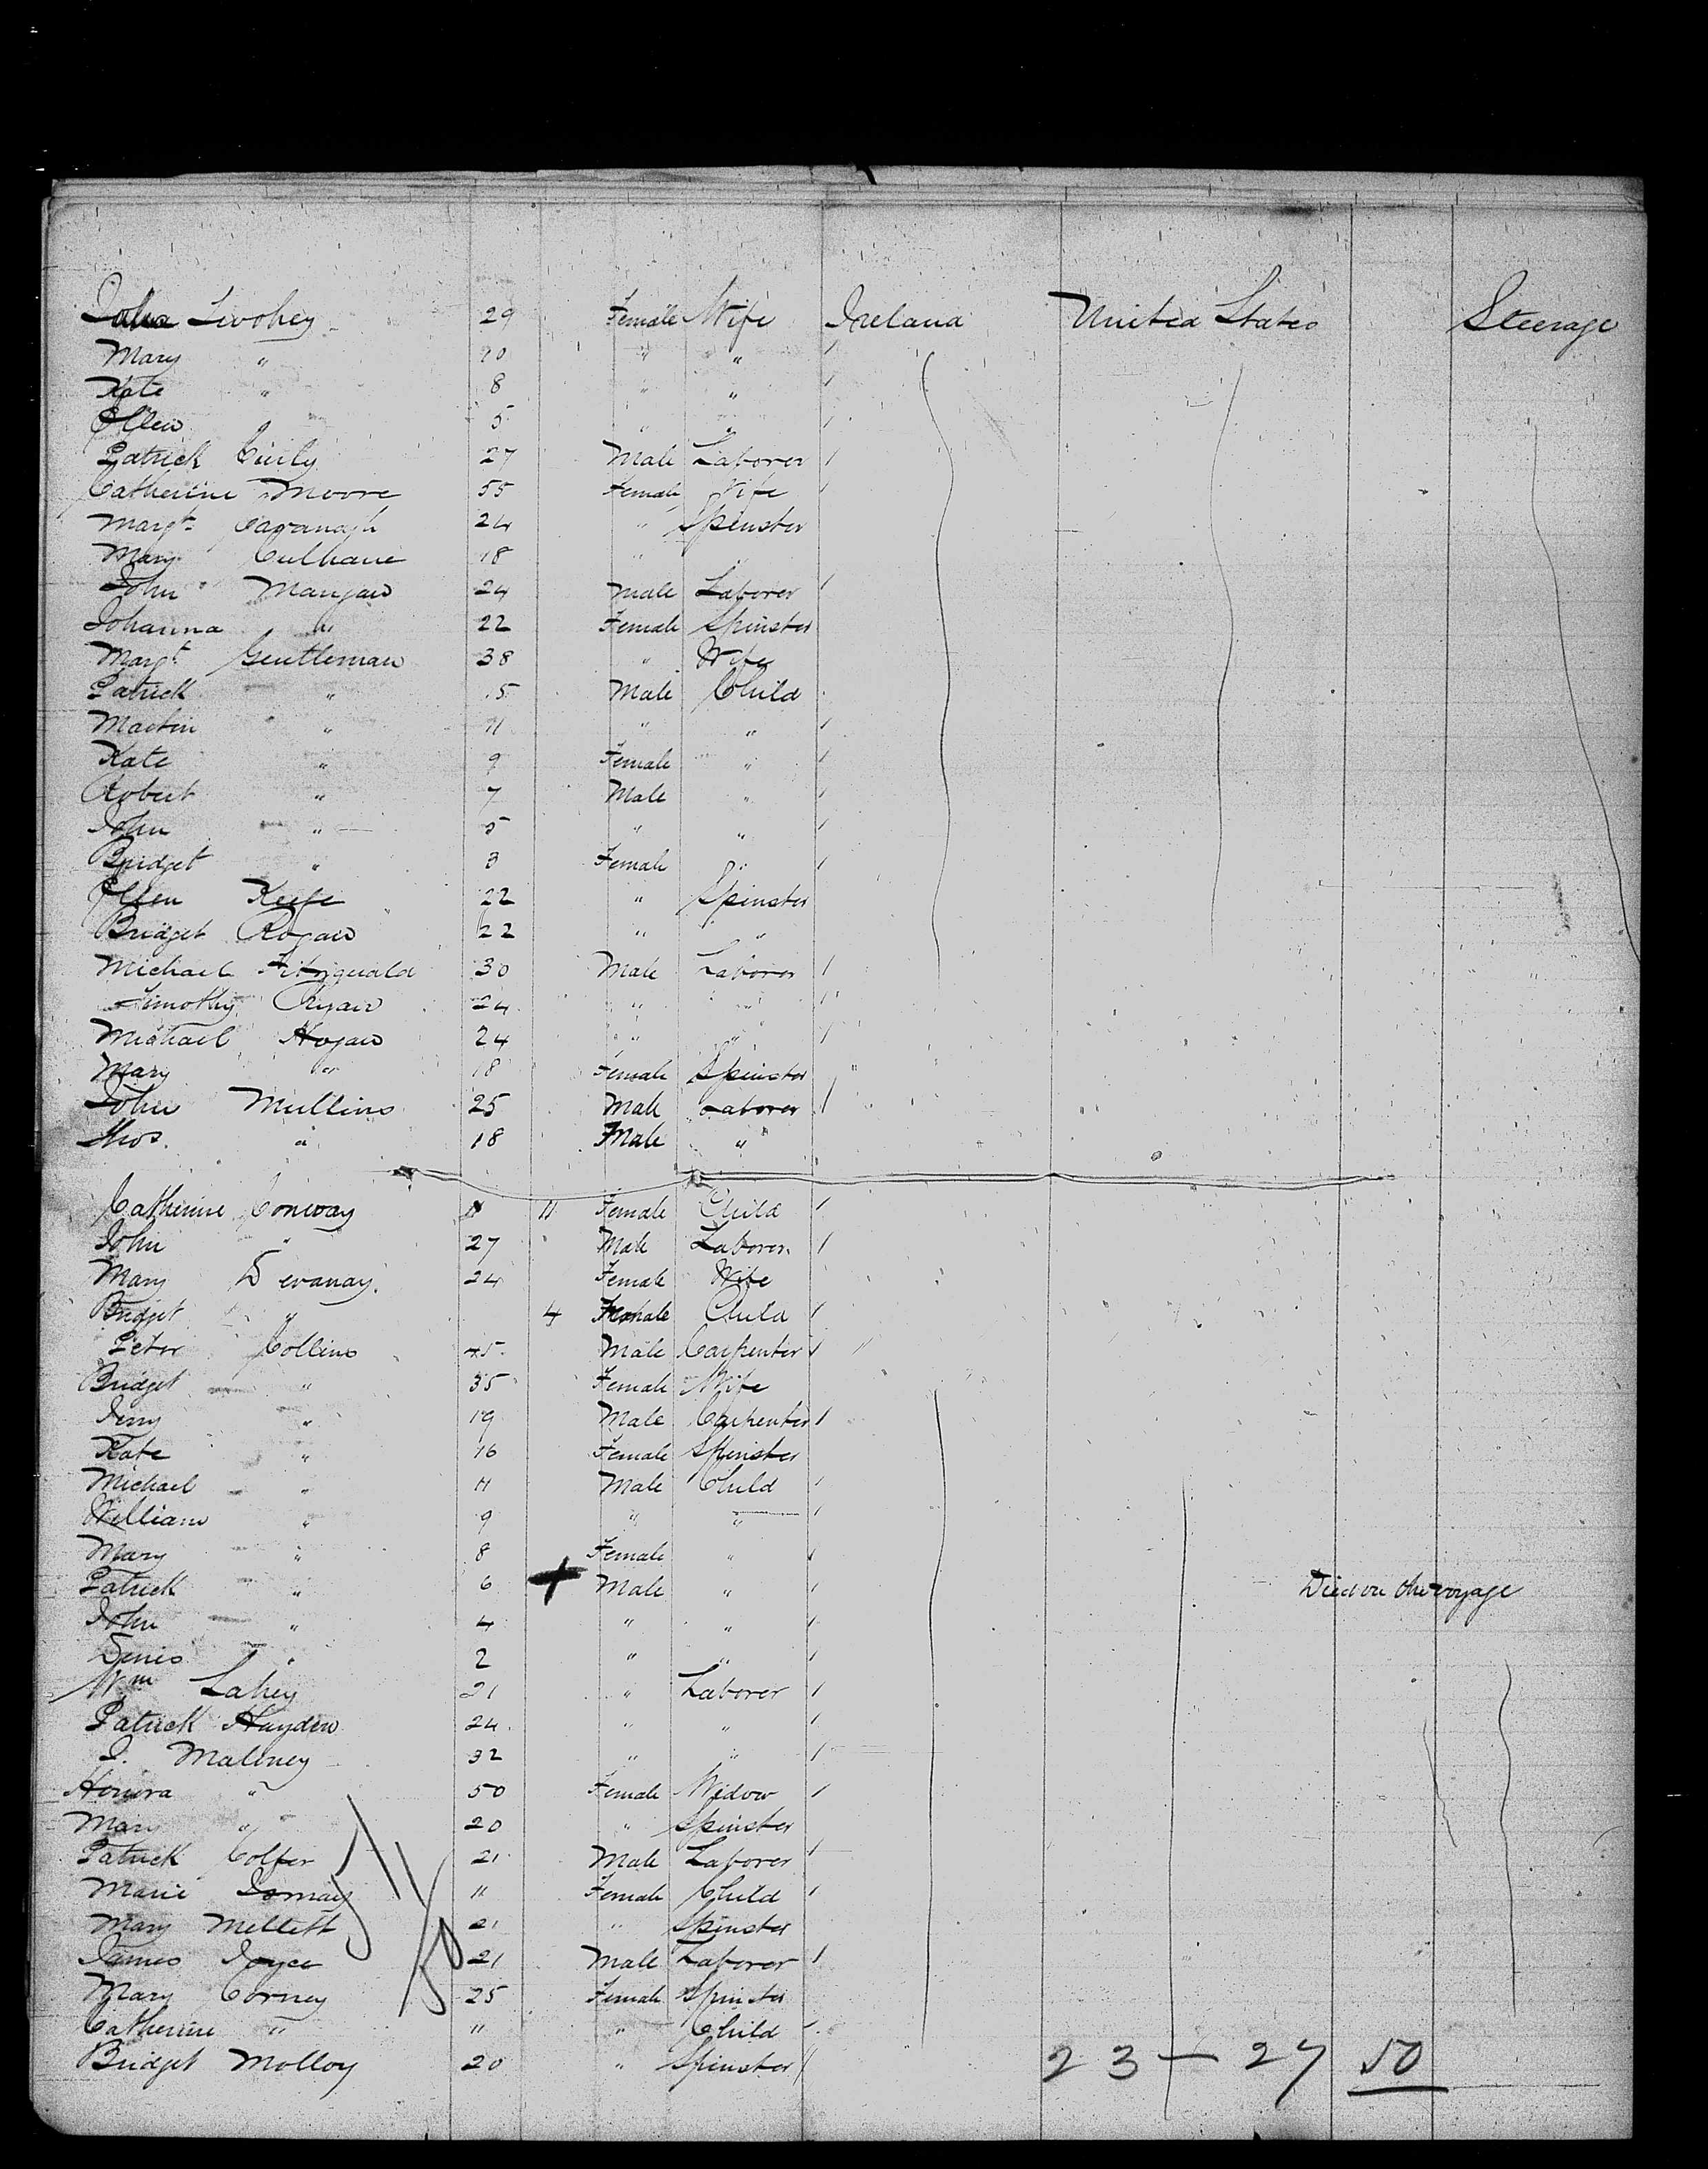 Twohey 29 Female Wife Ireland United States Steerage
Mary " " "
Kate " 8 " "
Ellen 5 " "
Patrick 27 Male Laborer
Catherine Moore 55 Female Wife
Margt Cavanagh 24 " Spinster
Mary Culhane 18 " "
John Mangan 24 Male Laborer
Johanna " 22 Female Spinster
Margt Gentleman 38 " Wife
Patrick " Male Child
Martin " 11 " "
Kate " 9 Female "
Robert " 7 Male "
John " 5 " "
Bridget " 3 Female "
Ellen Keefe 22 " Spinster
Bridget Rogan 22 " "
Michael Fitzgerald 30 Male Laborer
Timothy Ryan 24 " "
Michael Hogan 24 " "
Mary " 18 Female Spinster
John Mullins 25 Male Laborer
Thos. " 18 Male "
Catherine Conway 11 Female Child
John " 27 Male Laborer
Mary Devanay. 24 Female Wife
Bridget " 4 Female Child
Peter Collins 45 Male Carpenter
Bridget " 35 Female Wife
Jerry " 19 Male Carpenter
Kate " 16 Female Spinster
Michael " 11 Male Child
William " 9 " "
Mary " 8 Female "
Patrick " 6 + Male " Died on the voyage
John " 4 " "
Denis " 2 " "
Wm Lahey 21 " Laborer
Patrick Hayden 24 " "
J. Maloney 32 " "
Honora " 50 Female Widow
Mary " 20 " Spinster
Patrick Colfer 21 Male Laborer
Marie 11 Female Child
Mary Mellett 21 " Spinster
James Joyce 21 Male Laborer
Mary Corney 25 Female Spinster
Catherine " 11 " Child
Bridget Molloy 20 " Spinster
23 - 27 50